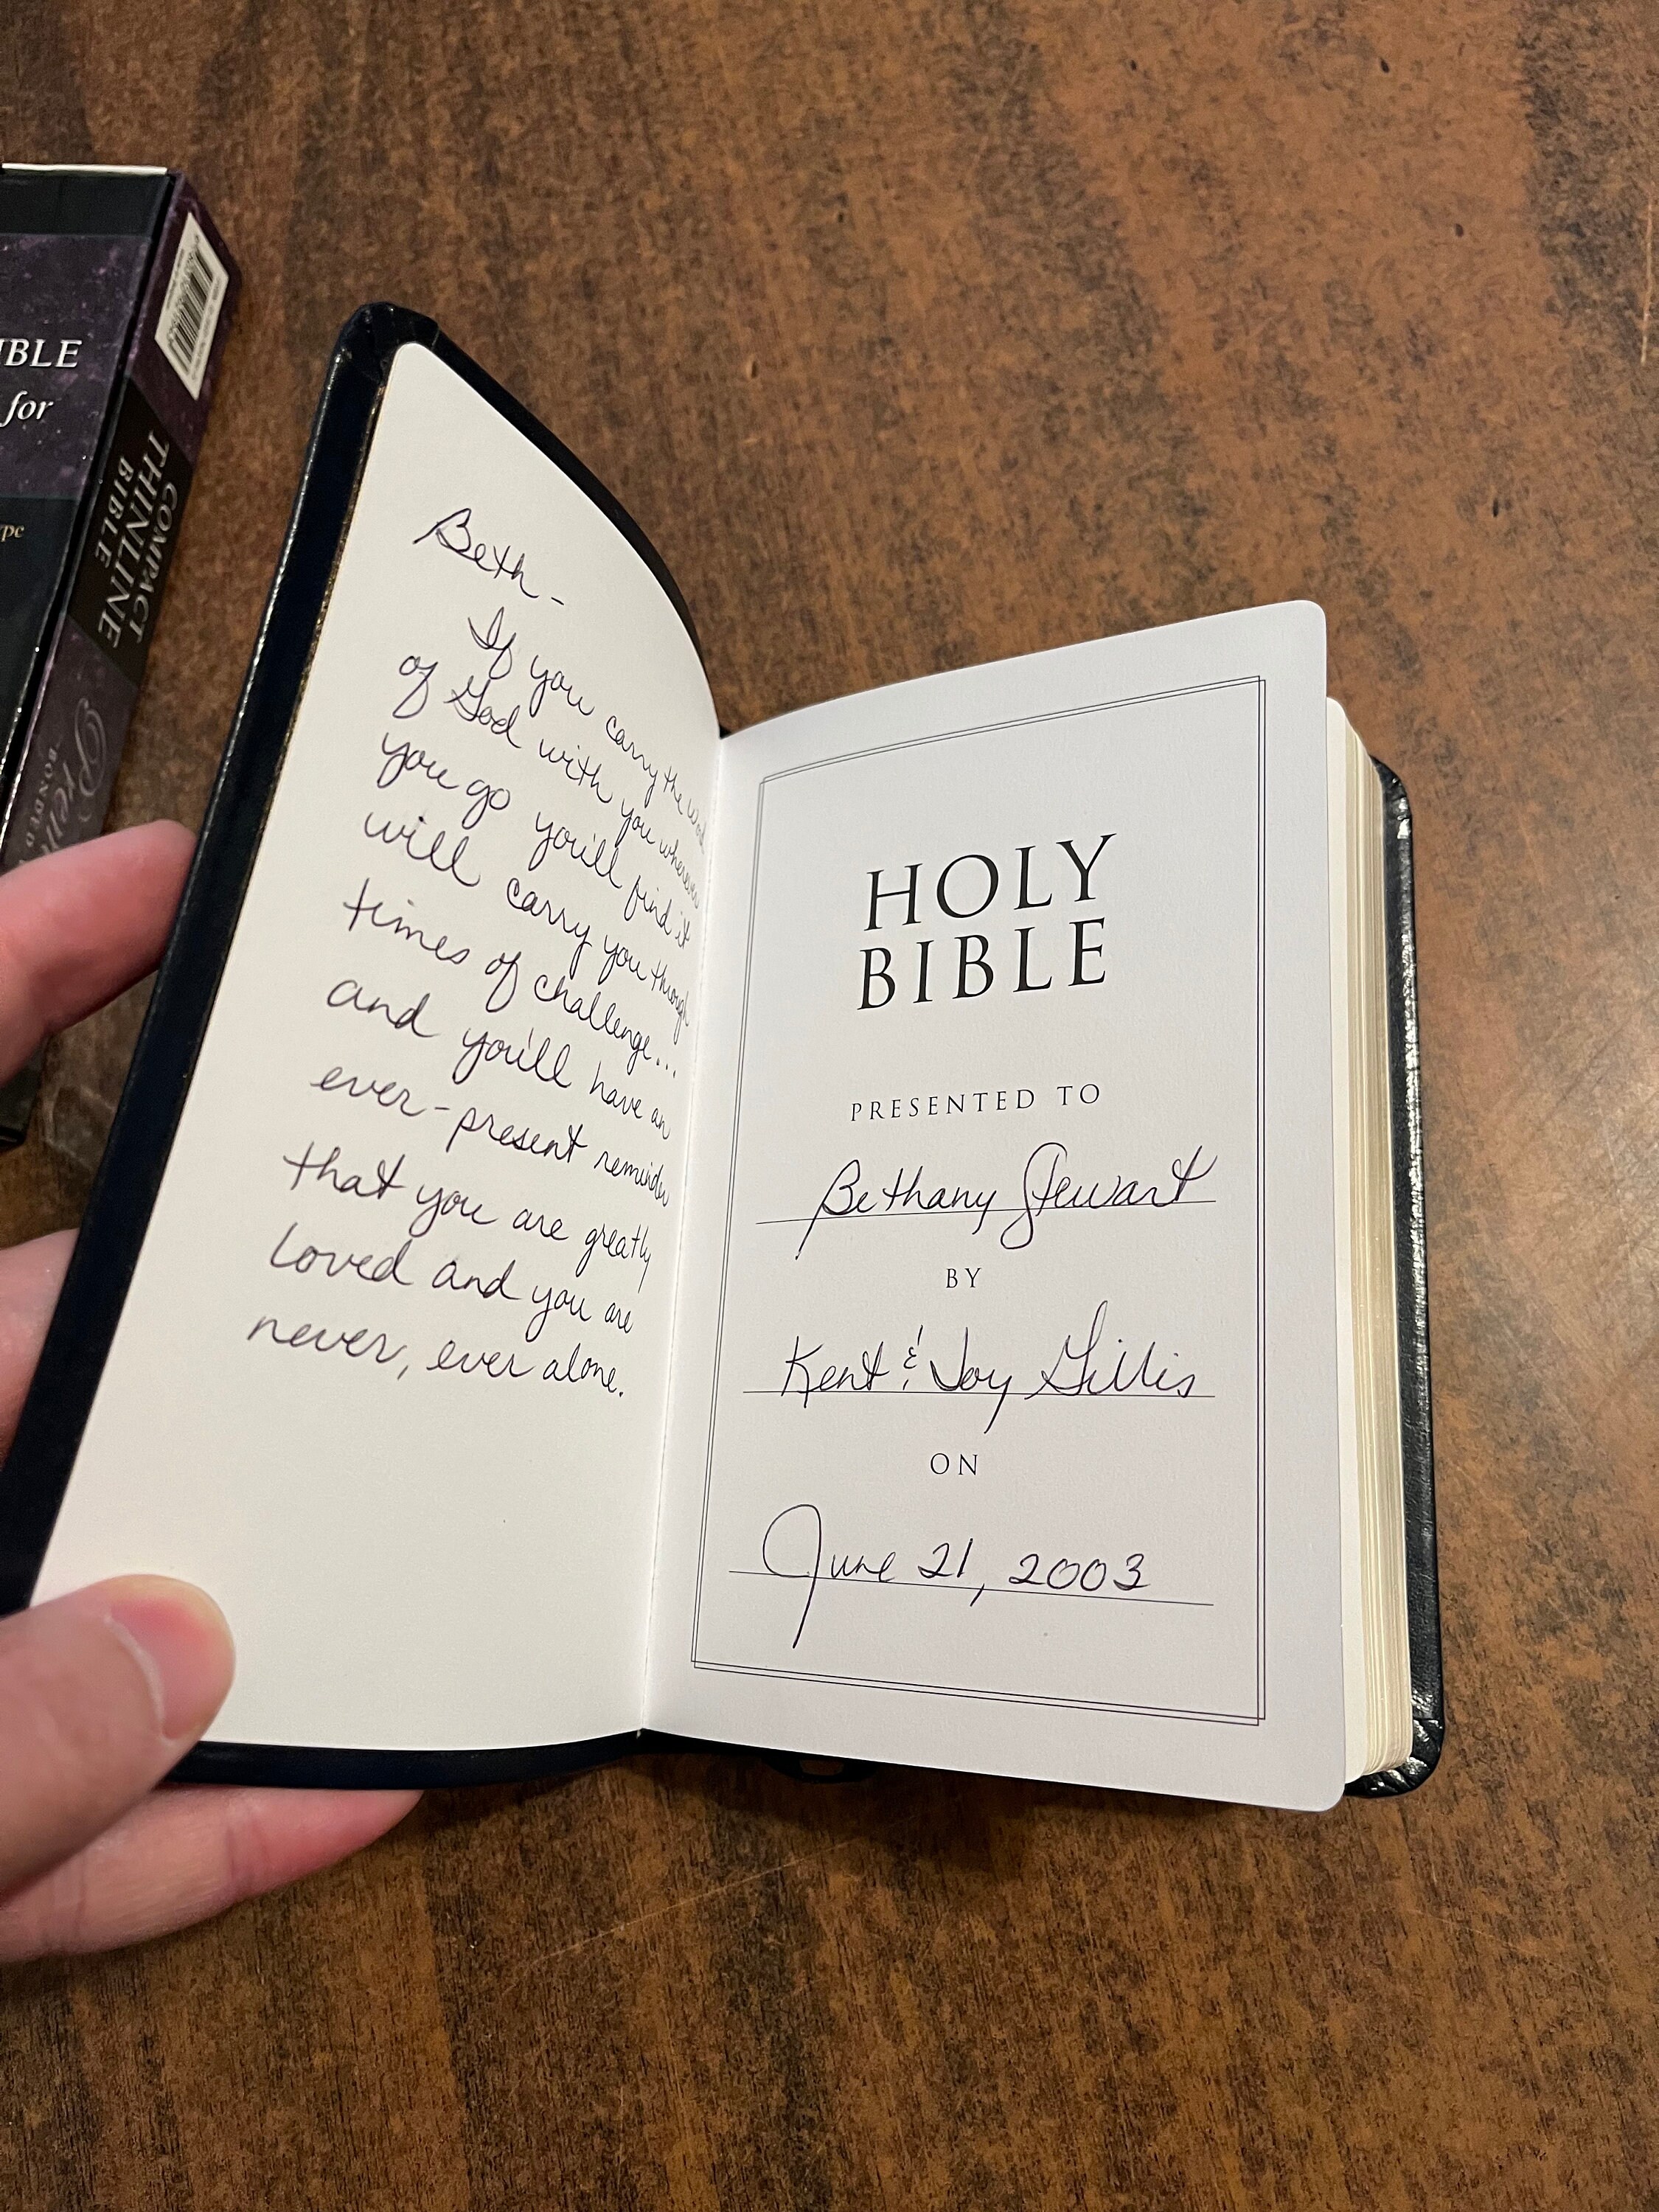 IBLE
for
COMPACT
THINLINE
BIBLE
Beth-
If you carry the word
of God with you wherever
you go you'll find it
will carry you through
times of challenge...
and you'll have an
ever-present reminder
that you are greatly
loved and you are
never, ever alone.
HOLY
BIBLE
PRESENTED TO
Bethany Stewart
BY
Kent & Joy Gillis
ON
June 21, 2003